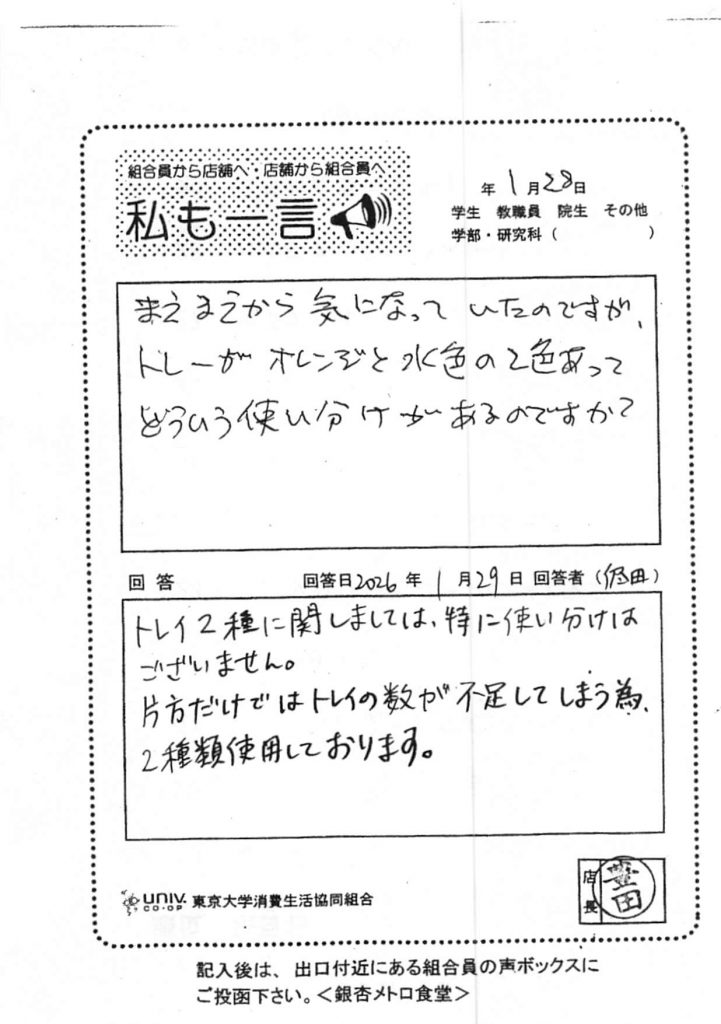 組合員から店舗へ・店舗から組合員へ
私も一言
年 1月28日
学生 教職員 院生 その他
学部・研究科( )
まえまえから気になっていたのですが、
トレーがオレンジと水色の2色あって
どういう使い分けがあるのですか?
回答 回答日2026年 1月29日 回答者( 田)
トレイ2種に関しましては、特に使い分けは
ございません。
片方だけではトレイの数が不足してしまう為、
2種類使用しております。
店長 豊田
UNIV. CO-OP 東京大学消費生活協同組合
記入後は、出口付近にある組合員の声ボックスに
ご投函下さい。<銀杏メトロ食堂>